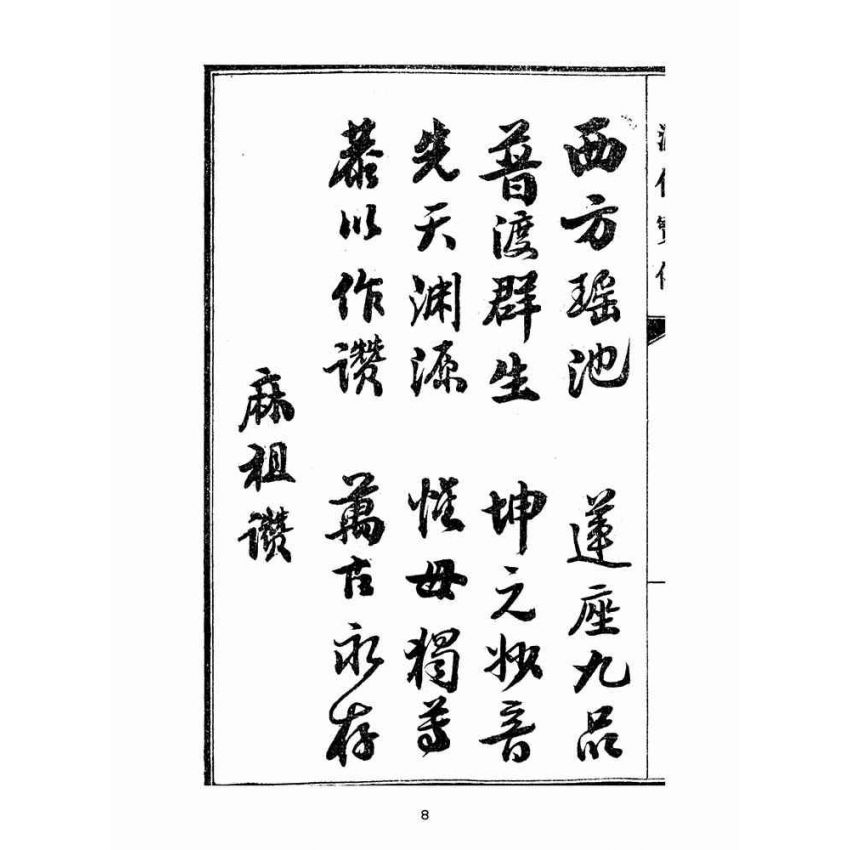 西方瑶池 蓮座九品
普渡群生 坤元妙音
先天渊源 惟母獨尊
恭以作讚 萬古永存
麻祖讚
8